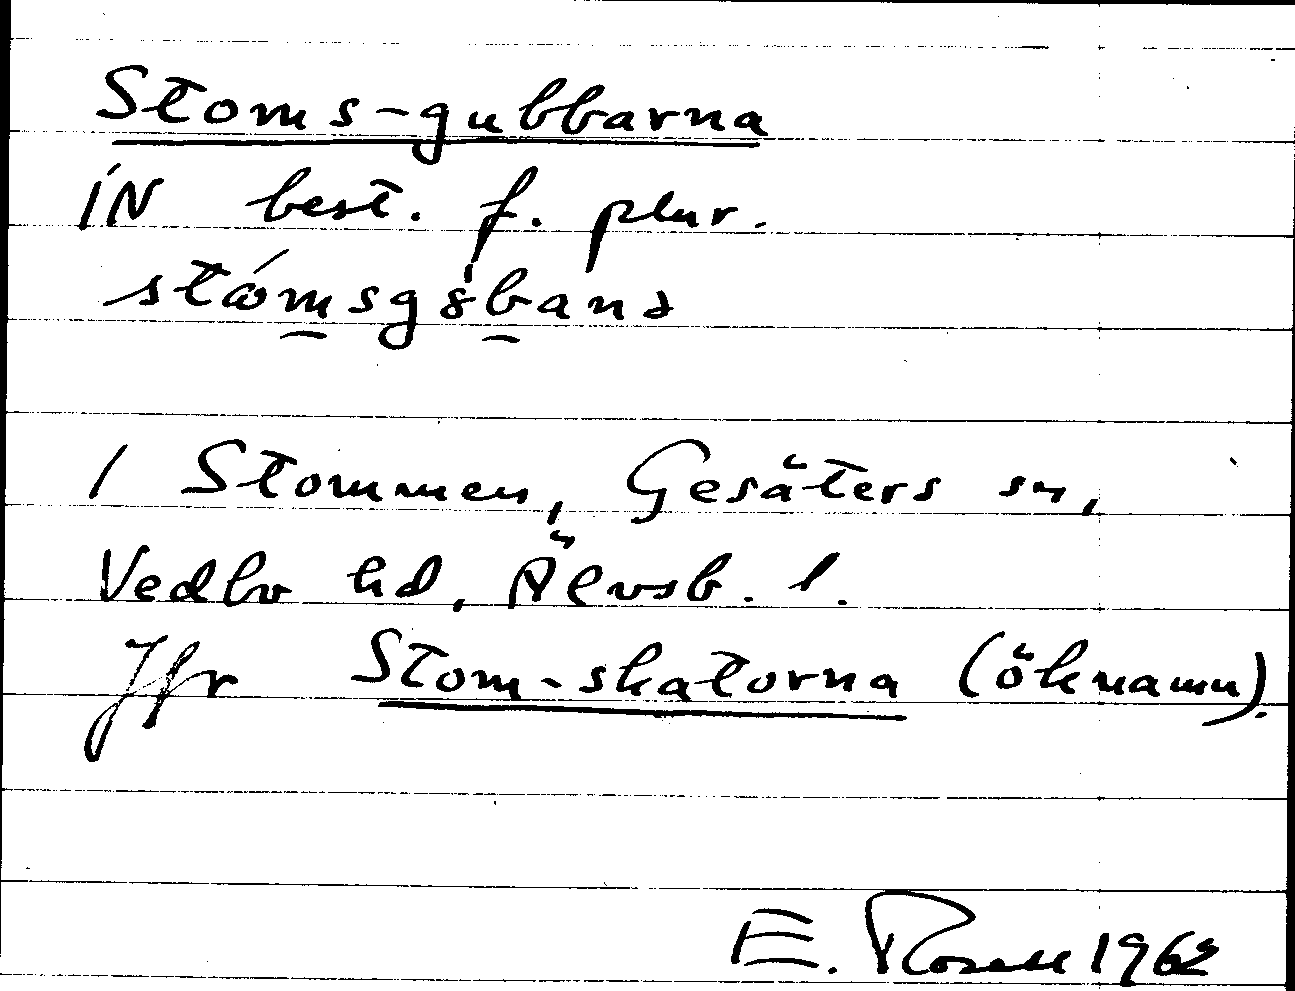 Stoms-gubbarna
IN best. f. plur.
stómsgȣ̀banə
/ Stommen, Gesäters sn,
Vedbo hd, Älvsb. l.
Jfr Stom-skatorna (öknamn).
E. Rosell 1962